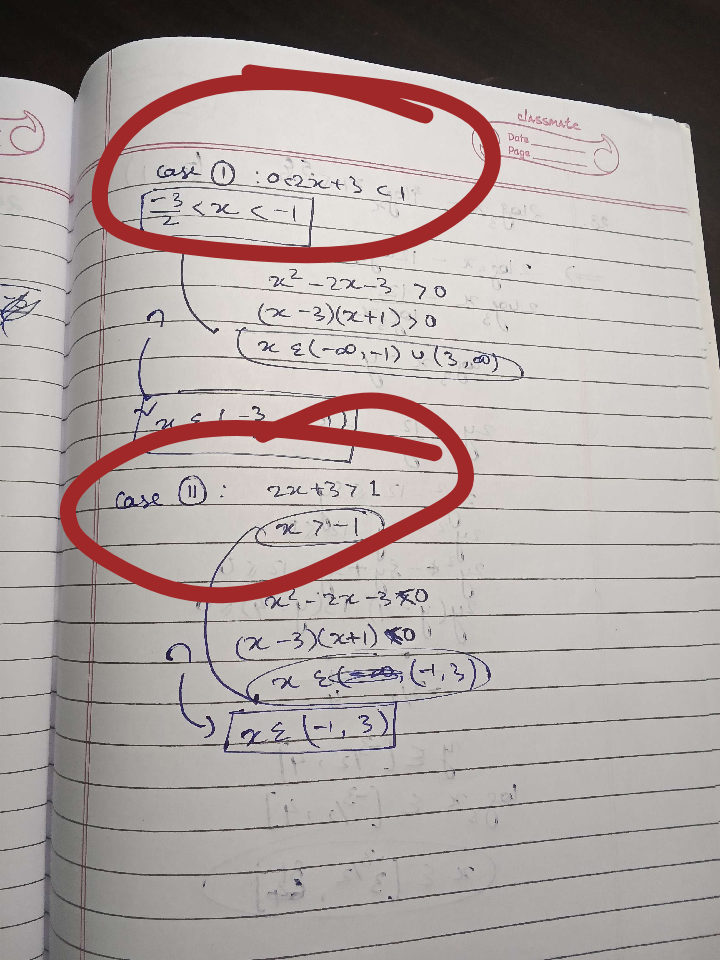 classmate
Date
Page
case I : 0<2x+3 < 1
-3/2 < x < -1
x² - 2x - 3 > 0
(x - 3)(x + 1) > 0
∩
x ε (-∞, -1) ∪ (3, ∞)
x ε ( -3
case II : 2x + 3 > 1
x > -1
x² - 2x - 3 < 0
(x - 3)(x + 1) < 0
∩
x ε (-1, 3)
x ε (-1, 3)